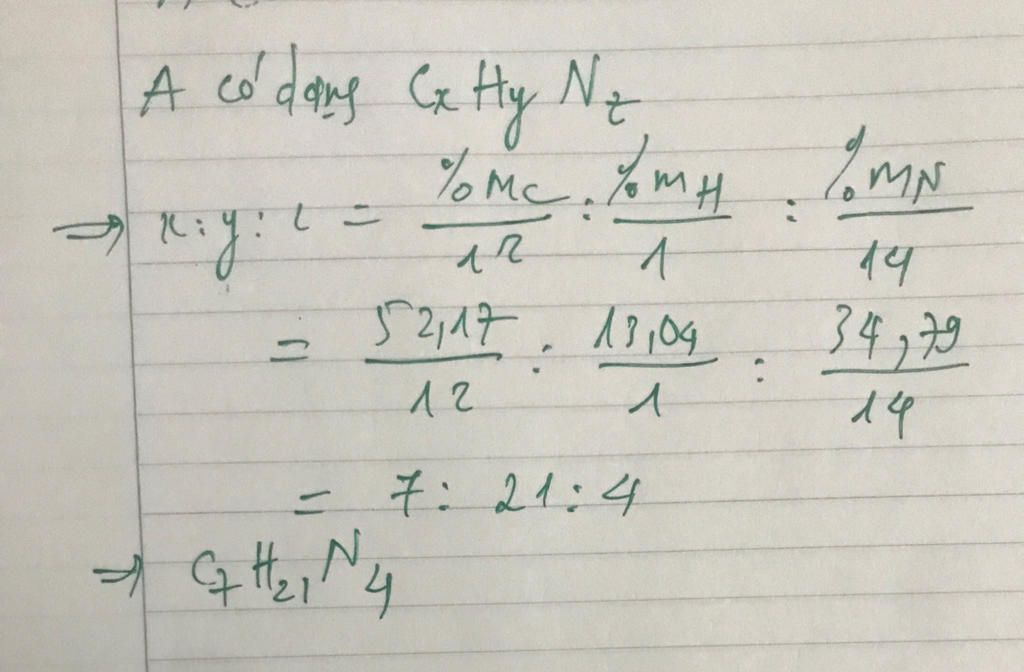 A có dạng CxHyNz
=> x : y : z = %mC/12 : %mH/1 : %mN/14
= 52,17/12 : 13,04/1 : 34,79/14
= 7 : 21 : 4
=> C7H21N4